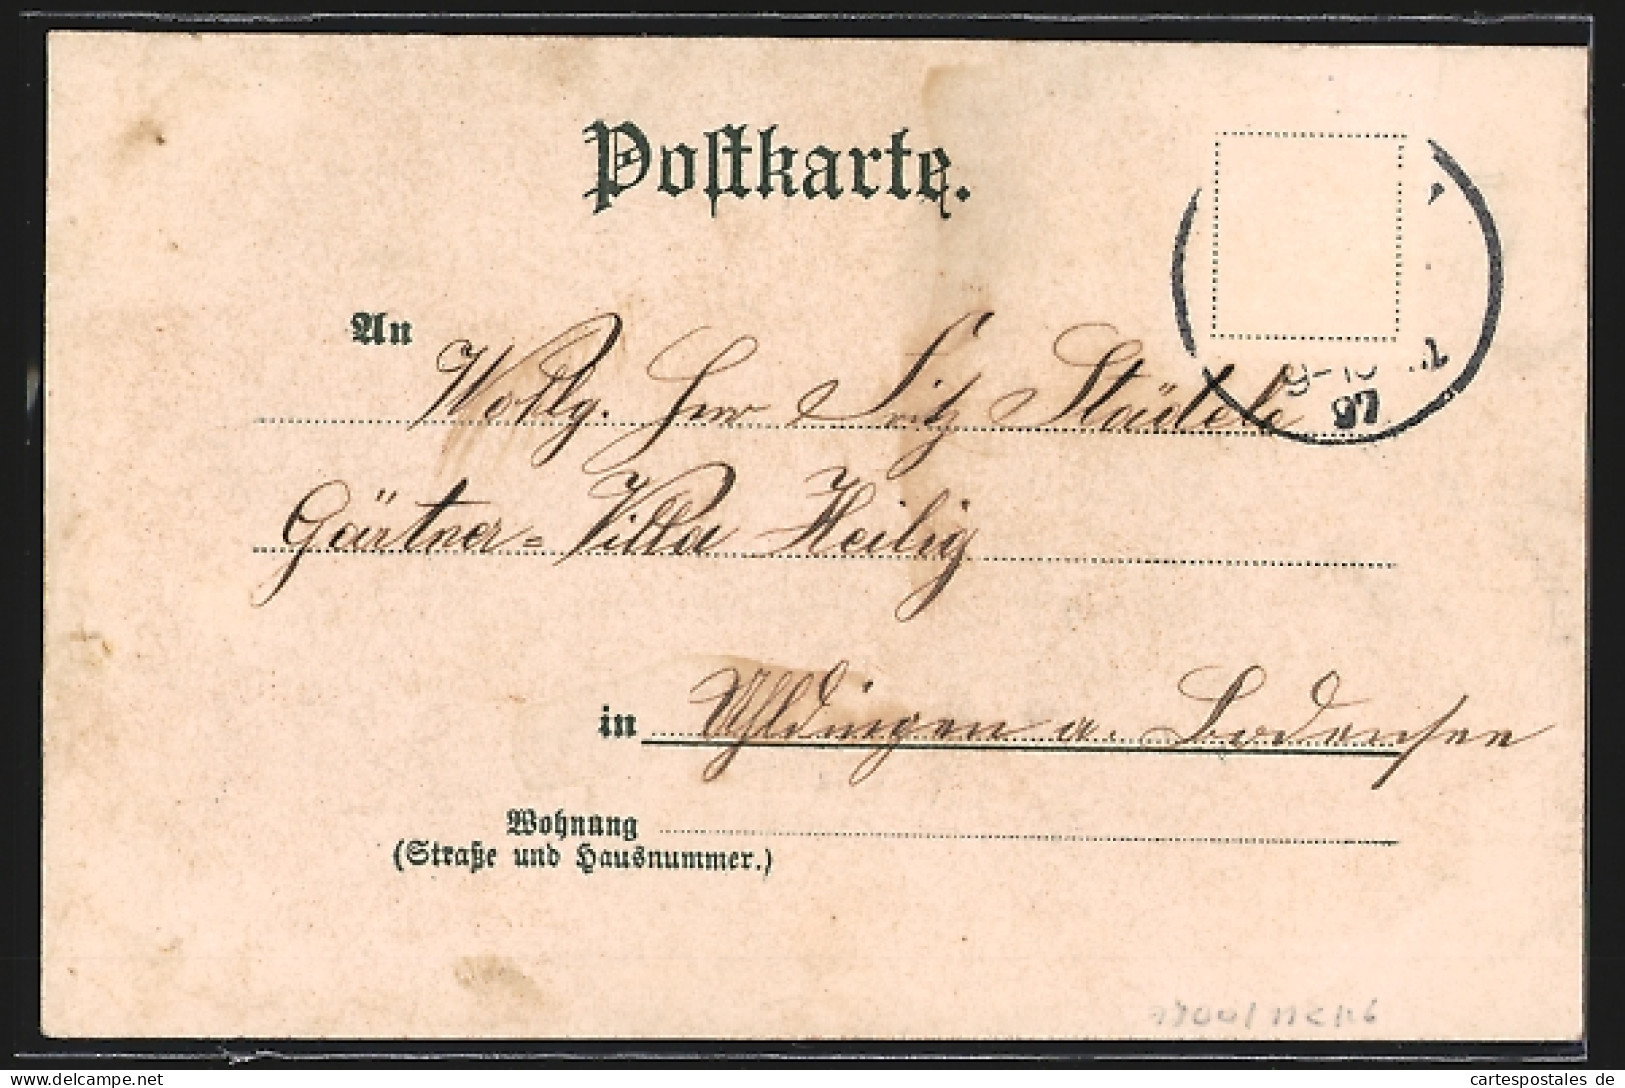 Postkarte.
An Wohlg. Herrn Fritz Städele
Gärtner = Villa Heilig
in Uhldingen a. Bodensee
Wohnung
(Straße und Hausnummer.)
97
cartespostales de